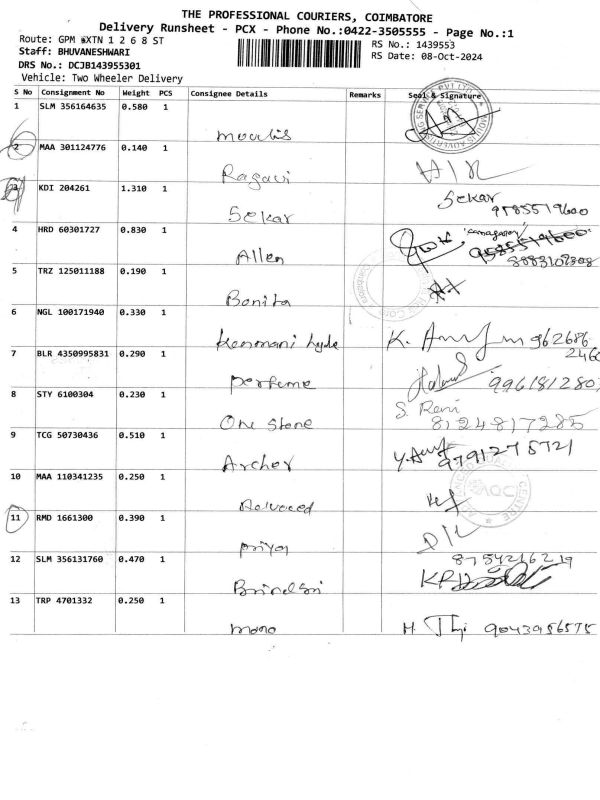 THE PROFESSIONAL COURIERS, COIMBATORE
Delivery Runsheet - PCX - Phone No.:0422-3505555 - Page No.:1
Route: GPM EXTN 1 2 6 8 ST
RS No.: 1439553
Staff: BHUVANESHWARI
RS Date: 08-Oct-2024
DRS No.: DCJB143955301
Vehicle: Two Wheeler Delivery
S No Consignment No Weight PCS Consignee Details Remarks Seal & Signature
1 SLM 356164635 0.580 1
Moulis
2 MAA 301124776 0.140 1
Ragavi
3 KDI 204261 1.310 1
Sekar Sekar
9585519600
4 HRD 60301727 0.830 1
Allen 8883108808
5 TRZ 125011188 0.190 1
Bonita
6 NGL 100171940 0.330 1
7 BLR 4350995831 0.290 1
Perfume
8 STY 6100304 0.230 1
One Stone 8124817285
9 TCG 50730436 0.510 1
Archer 9791275721
10 MAA 110341235 0.250 1
11 RMD 1661300 0.390 1
Priya
12 SLM 356131760 0.470 1 8754216219
13 TRP 4701332 0.250 1
Mano 9043956575